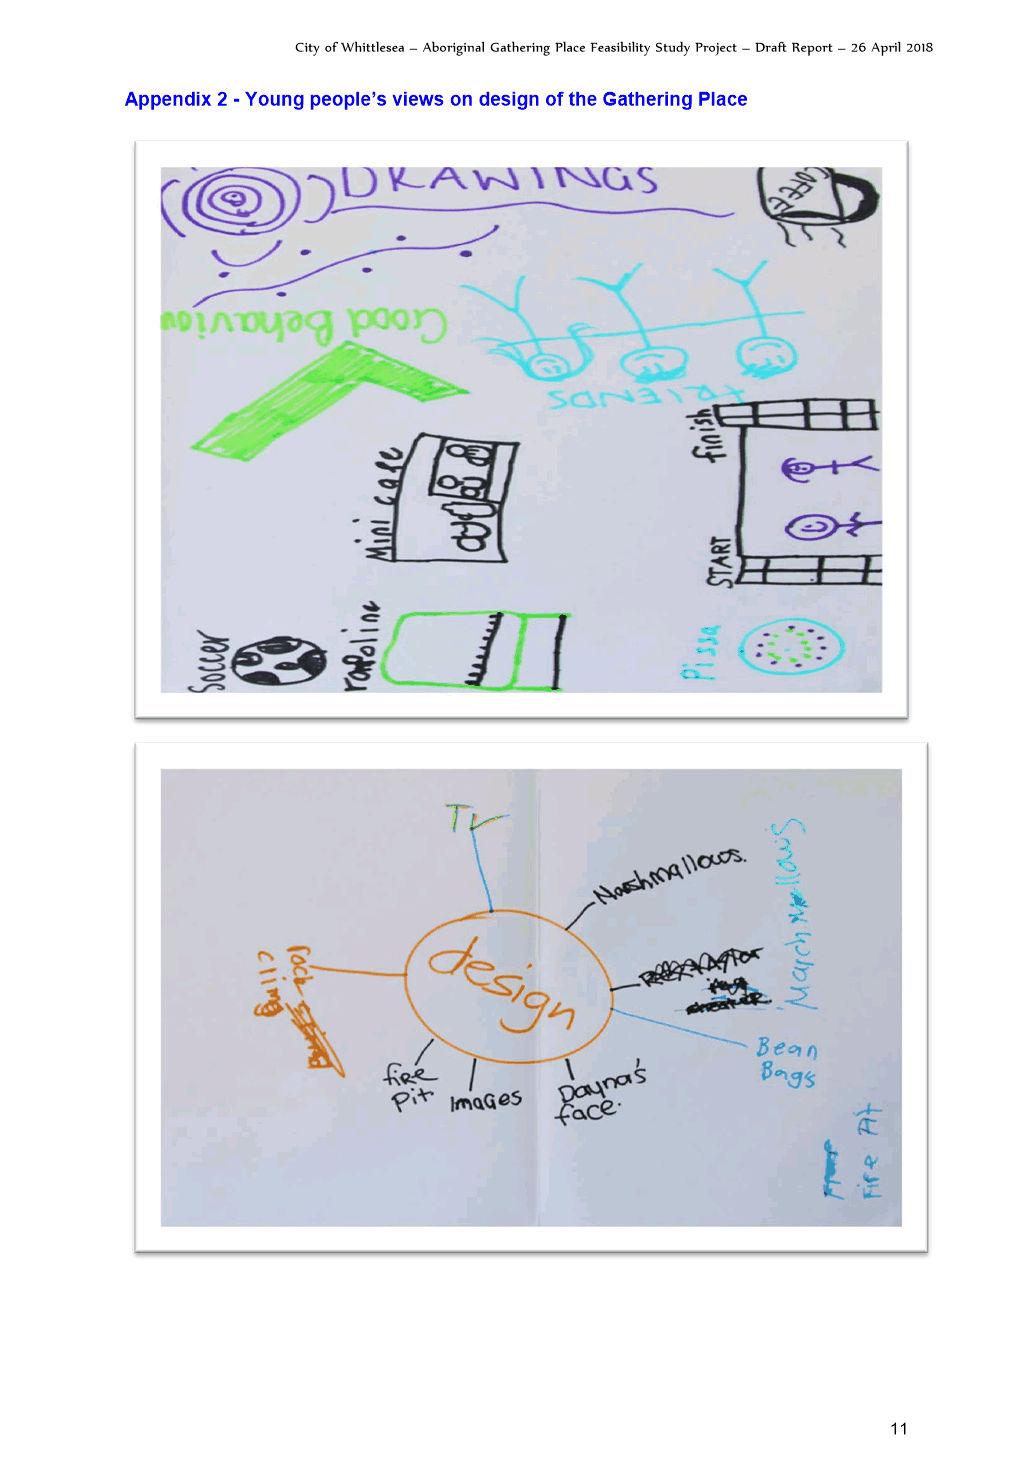 City of Whittlesea – Aboriginal Gathering Place Feasibility Study Project – Draft Report – 26 April 2018
Appendix 2 - Young people's views on design of the Gathering Place
DRAWINGS
COFFEE
Good Behaviou
FRIENDS
finish
Mini cafe
START
Soccer
rapoline
Pissa
Tv
Marshmallows.
March mallows
design
Rock
cling
Bean
Bags
fire
pit.
Images
Dayna's
face.
Fire Pit
11